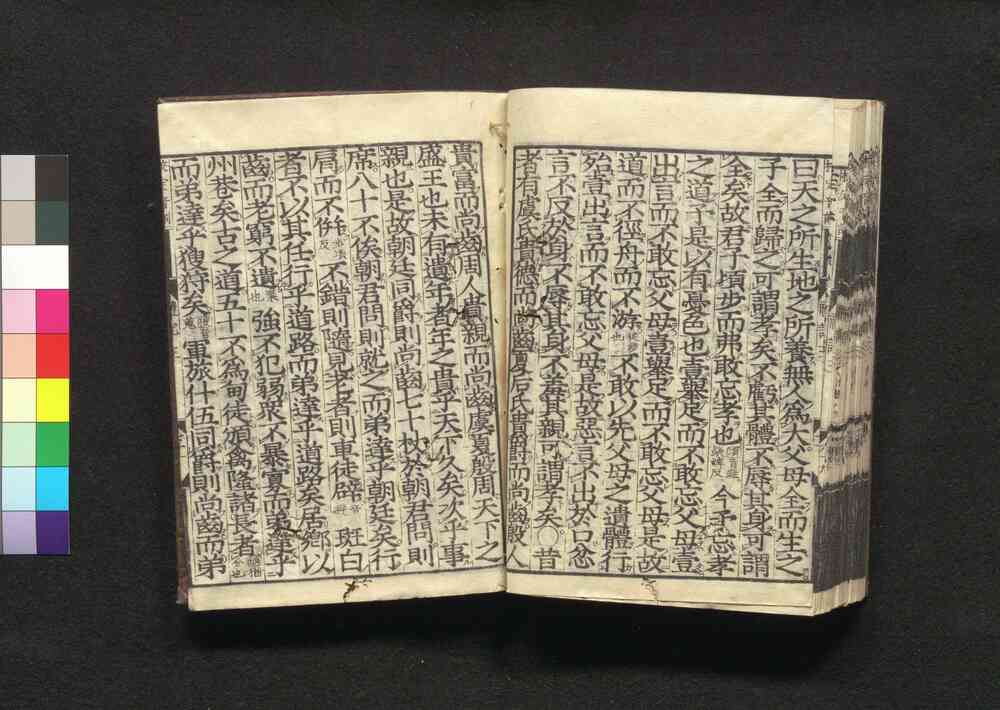 曰天之所生地之所養無人爲大父母全而生之
子全而歸之可謂孝矣不虧其體不辱其身可謂
全矣故君子頃步而弗敢忘孝也今予忘孝
之道予是以有憂色也壹舉足而不敢忘父母壹
出言而不敢忘父母壹舉足而不敢忘父母是故
道而不徑舟而不游不敢以先父母之遺體行
殆壹出言而不敢忘父母是故惡言不出於口忿
言不反於身不辱其身不羞其親可謂孝矣○昔
者有虞氏貴德而尚齒夏后氏貴爵而尚齒殷人
貴富而尚齒周人貴親而尚齒虞夏殷周天下之
盛王也未有遺年者年之貴乎天下久矣次乎事
親也是故朝廷同爵則尚齒七十杖於朝君問則
席八十不俟朝君問則就之而弟達乎朝廷矣行
肩而不併不錯則隨見老者則車徒辟斑白
者不以其任行乎道路而弟達乎道路矣居鄉以
齒而老窮不遺強不犯弱衆不暴寡而弟達乎
州巷矣古之道五十不爲甸徒頒禽隆諸長者
而弟達乎獀狩矣軍旅什伍同爵則尚齒而弟